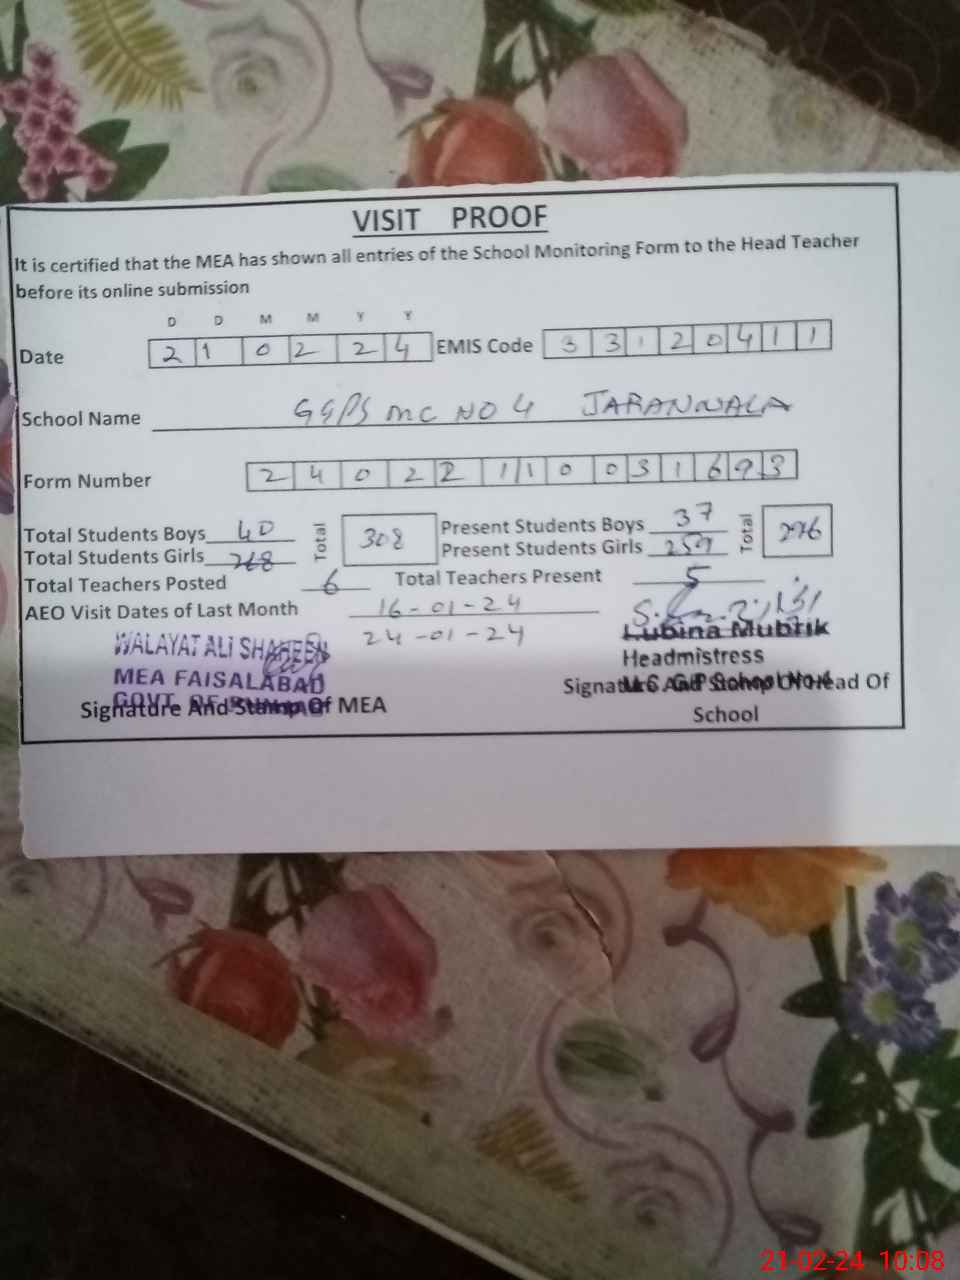 VISIT PROOF
It is certified that the MEA has shown all entries of the School Monitoring Form to the Head Teacher
before its online submission
D D M M Y Y
Date 2 1 0 2 2 4 EMIS Code 3 3 1 2 0 4 1 1
School Name GGPS MC NO 4 JARANWALA
Form Number 2 4 0 2 2 1 1 0 0 3 1 6 9 3
Total Students Boys 40 Total 308 Present Students Boys 37 Total 296
Total Students Girls 268 Present Students Girls 259
Total Teachers Posted 6 Total Teachers Present 5
AEO Visit Dates of Last Month 16-01-24
24-01-24
WALAYAT ALI SHAHEEN
MEA FAISALABAD
GOVT OF PUNJAB
Signature And Stamp Of MEA
Lubina Mubrik
Headmistress
M.C. G/P School No.4
Signature And Stamp Of Head Of
School
21-02-24 10:08